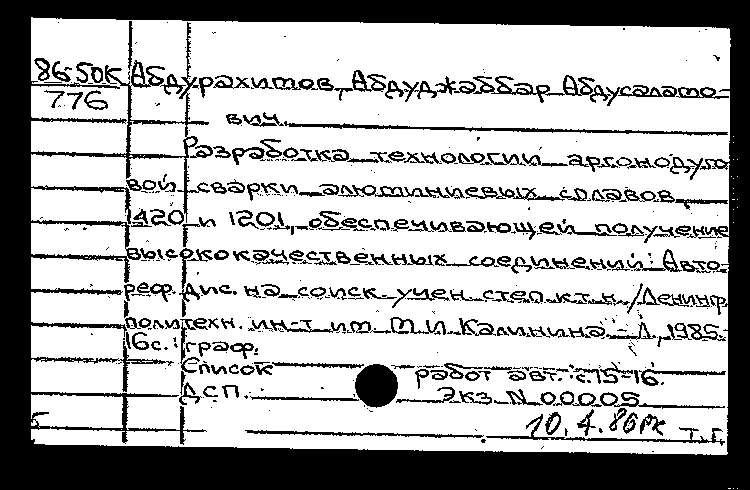 86-50К Абдурахитов, Абдуджаббар Абдусалато-
776
вич.
Разработка технологии аргонодуго
вой сварки алюминиевых сплавов
1420 и 1201, обеспечивающей получение
высококачественных соединений: Авто-
реф. дис. на соиск. учен. степ. к.т.н. / Ленингр.
политехн. ин-т им. М И Калинина. - Л, 1985.
16с.: граф.
Список работ авт.: с.15-16.
ДСП. Экз. N 00005.
10.4.86 РК Т.Г.